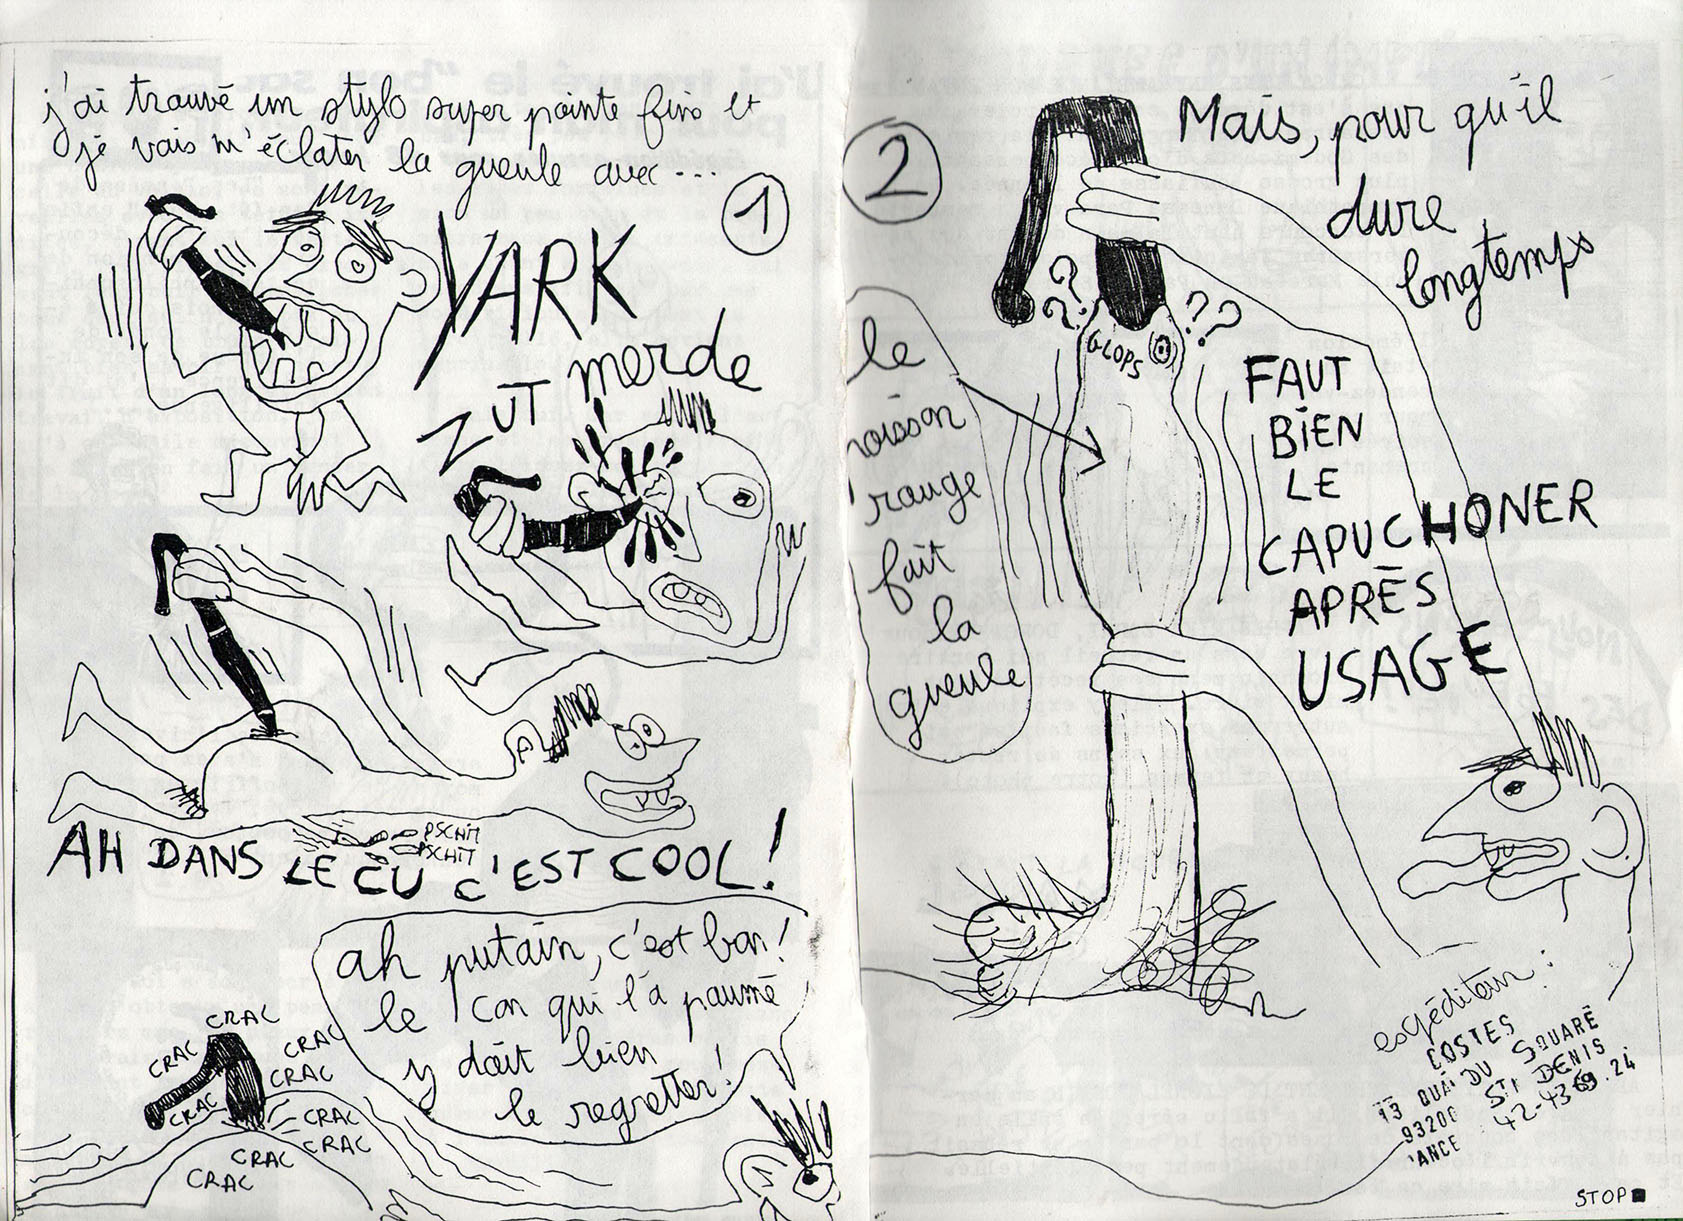 j'ai trouvé un stylo super pointe fine et
je vais m'éclater la gueule avec...
1
YARK
ZUT merde
PSCHIT
PSCHIT
AH DANS LE CU C'EST COOL!
ah putain, c'est bon!
le con qui l'a paumé
y doit bien
le regretter!
CRAC
CRAC
CRAC
CRAC
CRAC
CRAC
CRAC
CRAC
CRAC
2
Mais, pour qu'il
dure
longtemps
? ?
? ??
GLOPS
le
poisson
rouge
fait
la
gueule
FAUT
BIEN
LE
CAPUCHONER
APRÈS
USAGE
expéditeur :
COSTES
13 QUAI DU SQUARE
93200 ST DENIS
42-43 .24
STOP